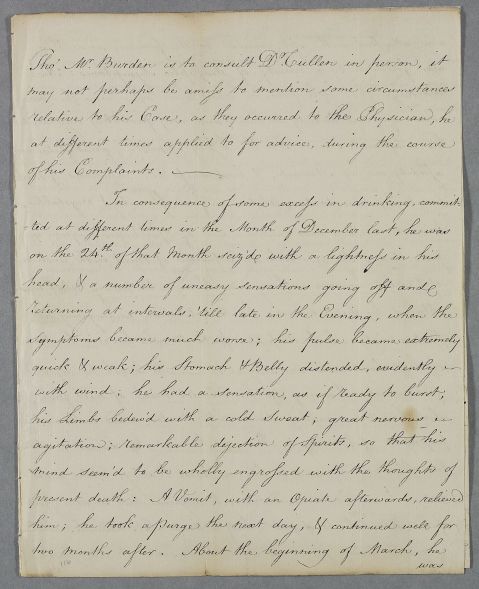 Tho' Mr. Burden is to consult Dr. Cullen in person, it
may not perhaps be amiss to mention some circumstances
relative to his Case, as they occurred to the Physician, he
at different times applied to for advice, during the course
of his Complaints.
In consequence of some excess in drinking, commit-
-ted at different times in the Month of December last, he was
on the 24th. of that Month seiz'd with a lightness in his
head, & a number of uneasy sensations going off and
returning at intervals, 'till late in the Evening, when the
symptoms became much worse; his pulse became extremely
quick & weak; his Stomach & Belly distended, evidently
with wind; he had a sensation, as if ready to burst;
his Limbs bedew'd with a cold Sweat; great nervous
agitation; remarkable dejection of Spirits, so that his
mind seem'd to be wholly engrossed with the thoughts of
present death: A Vomit, with an Opiate afterwards, relieved
him; he took a purge the next day, & continued well for
two months after. About the beginning of March, he
was